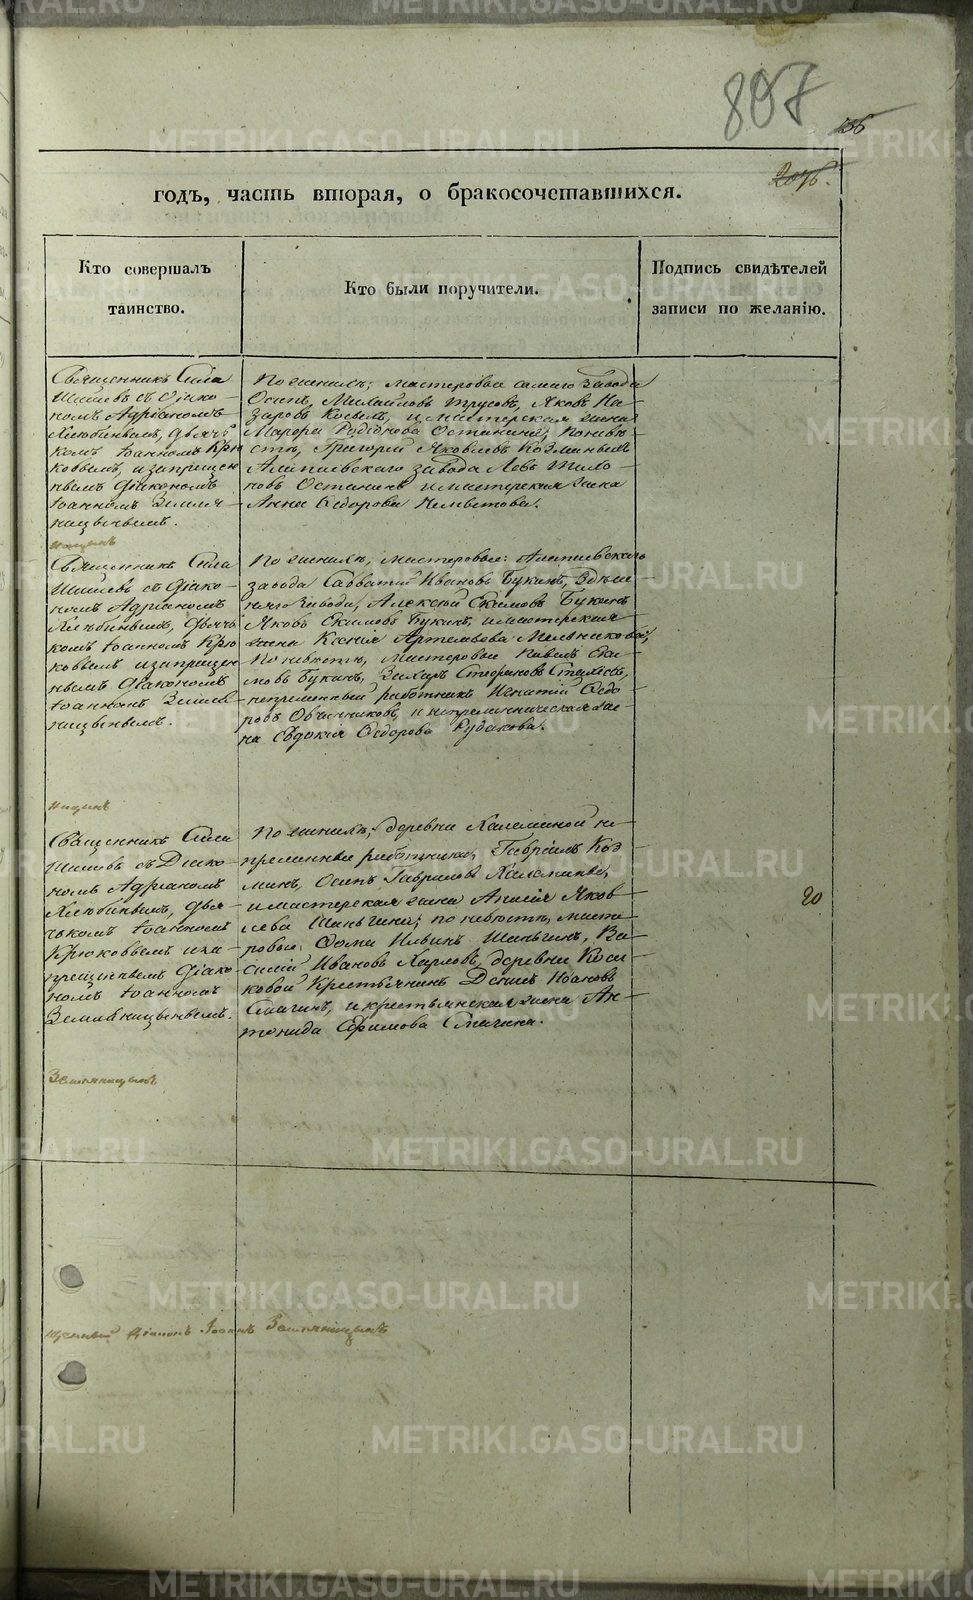 807
156
годъ, часть вторая, о бракосочетавшихся.
Кто совершалъ
таинство.
Кто были поручители.
Подпись свидѣтелей
записи по желанію.
Священникъ Сила
Шишевъ съ Діако-
номъ Адріаномъ
Хлѣбинымъ, Дьяч-
комъ Іоанномъ Крю
ковымъ, и запрещен
нымъ Діакономъ
Іоанномъ Земля-
ницынымъ.
По женихѣ; мастеровые самаго завода
Осипъ Михайловъ Трусовъ, Яковъ На-
заровъ Костемъ, и мастерская жена
Марфа Родіонова Останина; по невѣ
стѣ, Григорій Яковлевъ
Алапаевскаго завода Левъ
новъ Останинъ и мастерская жена
Анна Ѳедорова
Священникъ Сила
Шишевъ съ Діако-
номъ Адріаномъ
Хлѣбинымъ, Дьяч
комъ Іоанномъ Крю
ковымъ и запрещен
нымъ Діакономъ
Іоанномъ Земля
ницынымъ.
По женихѣ, мастеровые: Алапаевскаго
завода Савватій Ивановъ Букинъ, Здѣш-
няго завода, Алексѣй Екимовъ Букинъ
Яковъ Екимовъ Букинъ, и мастерская
жена Ксенія Артемьева Мельникова;
По невѣстѣ, мастеровые Павелъ Еки-
мовъ Букинъ, Захаръ Стефановъ
непременный работникъ Игнатій Ѳедо
ровъ Овчинниковъ, и непременническая же-
на Евдокія Ѳедорова Рудакова.
Священникъ Сила
Шишевъ съ Діако-
номъ Адріаномъ
Хлѣбинымъ, Дья-
чкомъ Іоанномъ
Крюковымъ и за-
прещеннымъ Діако-
номъ Іоанномъ
Земляницынымъ.
По женихѣ; деревни не-
пременные работники, Гавріилъ Коз-
минъ, Осипъ Гавриловъ
и мастерская жена Анисія Яков
лева Шаньгина; по невѣстѣ, масте-
ровые, Ѳома Ильинъ Шаньгинъ, Ва-
силій Ивановъ Харловъ, деревни Коси-
ковой Крестьянинъ Денисъ Іоановъ
Смагинъ, и крестьянская жена Ан-
тонида Ефимова Смагина.
20
Земляницынъ
Діаконъ Іоаннъ Земляницынъ
METRIKI.GASO-URAL.RU